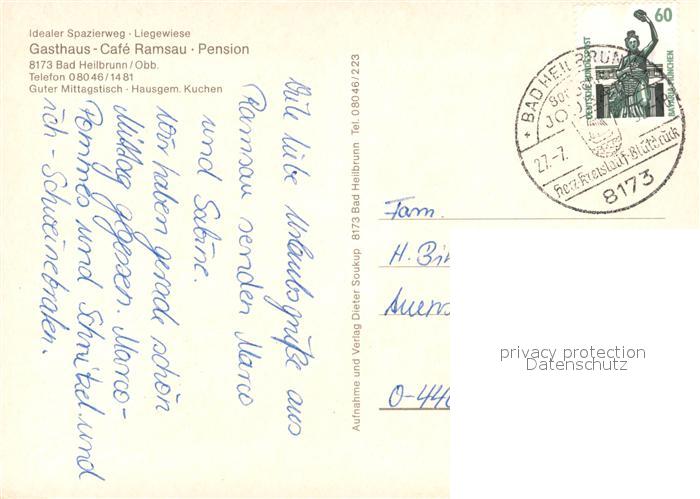 Idealer Spazierweg · Liegewiese
Gasthaus - Café Ramsau · Pension
8173 Bad Heilbrunn / Obb.
Telefon 0 80 46 / 14 81
Guter Mittagstisch · Hausgem. Kuchen
Viele liebe Urlaubsgrüße aus
Ramsau senden Marco
und Sabine.
Wir haben gerade schön
Mittag gegessen. Marco -
Pommes und Schnitzel und
ich - Schweinebraten.
Aufnahme und Verlag Dieter Soukup 8173 Bad Heilbrunn Tel. 0 80 46 / 2 23
60
DEUTSCHE BUNDESPOST
BAVARIA MÜNCHEN
+ BAD HEILBRUNN
27.-7.
Herz-Kreislauf-Blutdruck
8173
Fam.
H. Bi
Auers
O-440
privacy protection
Datenschutz